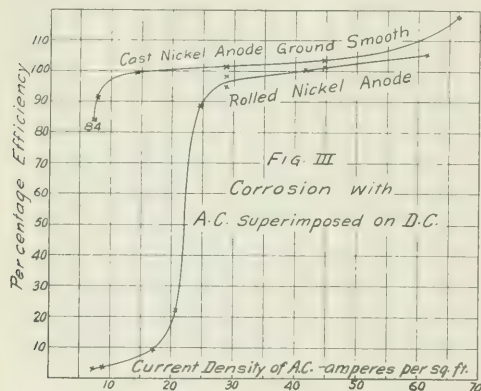 Percentage Efficiency
110
100
90
80
70
60
50
40
30
20
10
Cast Nickel Anode Ground Smooth
Rolled Nickel Anode
84
FIG. III
Corrosion with
A.C. superimposed on D.C.
Current Density of A.C.-amperes per sq.ft.
10
20
30
40
50
60
70